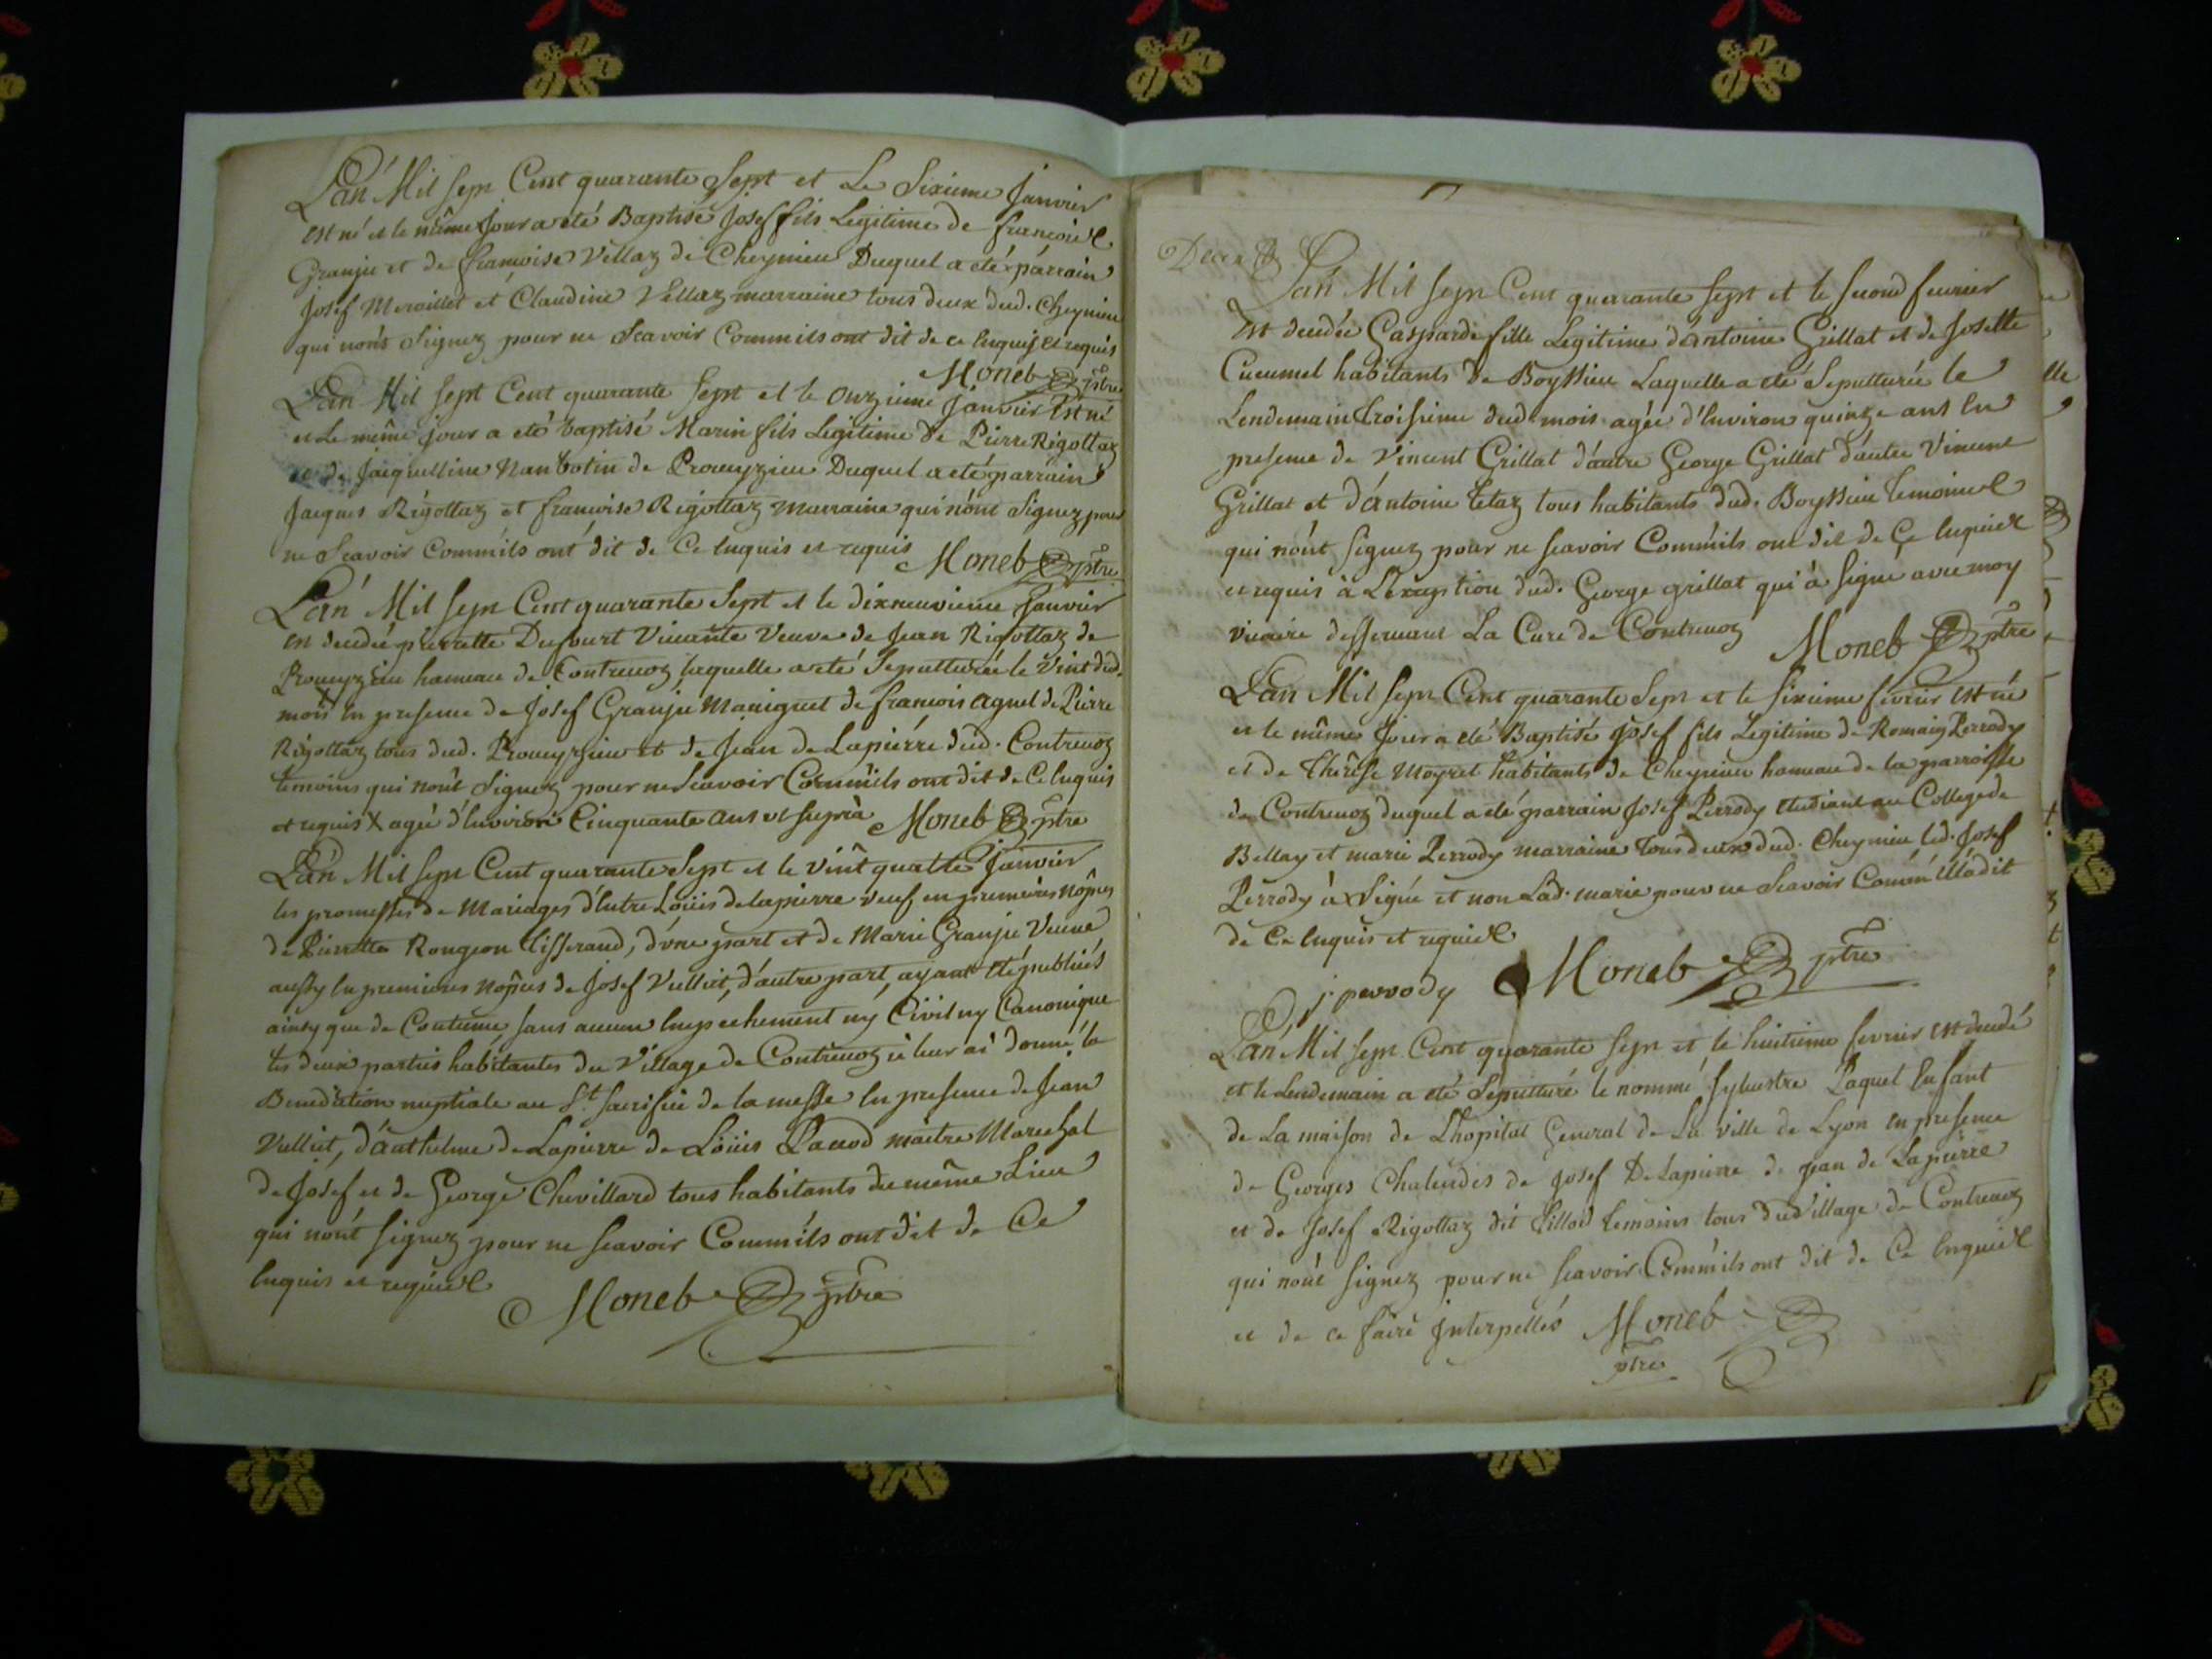 L'an Mil sept Cent quarante Sept et Le Sixieme Janvier
est né et le même Jour a eté Baptisé Josef fils Legitime de francois
Granju et de francoise Vellaz de Cheynieu Duquel a eté parrain
Josef Meraillet et Claudine Vellaz marraine tous deux dud. Cheynieu
qui nont Signez pour ne Scavoir Comm'ils ont dit de ce Enquis et requis
Moneb ptre
L'an Mil sept Cent quarante Sept et le onzieme Janvier Est né
et Le même jour a eté baptisé Marin fils Legitime de Pierre Rigottaz
et de Jacquelline Nambotin de Proueyzieu Duquel a eté parrain
Jacques Rigottaz et francoise Rigottaz marraine qui nónt Signez pour
ne Scavoir Comm'ils ont dit de Ce Enquis et requis Moneb ptre
L'an Mil sept Cent quarante Sept et le dixneuvieme Janvier
est decedée pierrette Dufourt Vivante Veuve de Jean Rigottaz de
Proueyzieu hameau de Contrevoz laquelle a eté Sepulturée le Vint dud.
mois En presence de Josef Granju Maniguet de francois agnel de Pierre
Rigottaz tous dud. Proueyzieu et de Jean de Lapierre dud. Contrevoz
temoins qui nont Signez pour ne Scavoir Comm'ils ont dit de Ce Enquis
et requis X agée d'Environ Cinquante ans ut supra Moneb ptre
L'an Mil sept Cent quarante Sept et le vint quatre Janvier
les promesses de Mariages d'Entre Loüis delapierre veuf en premieres nôpces
de Pierrette Rongeon tisserand, d'une part et de Marie Granju Veuve
aussy En premieres nôpces de Josef Vulliet, d'autre part, ayant eté publiés
ainsy que de Coutume, sans aucun Empechement ny Civil ny Canonique
les deux parties habitantes du Village de Contrevoz je leur ai donné la
Benediction nuptiale au St. sacrifice de la messe En presence de Jean
Vulliet, d'anthelme de Lapierre de Loüis Pacod maitre Marechal
de Josef et de George Chevillard tous habitants du même Lieu
qui nont signez pour ne scavoir Comm'ils ont dit de Ce
Enquis et requis
Moneb ptre
L'an Mil sept Cent quarante sept et le second fevrier
Est decedée Gasparde fille Legitime d'antoine Grillat et de Josette
Cucumel habitants de Boyssieu Laquelle a eté Sepulturée le
Lendemain troisieme dud. mois agée d'Environ quinze ans En
presence de Vincent Grillat d'autre George Grillat d'autre Vincent
Grillat et d'Antoine tetaz tous habitants dud. Boyssieu temoins
qui nont signez pour ne scavoir Comm'ils ont dit de Ce Enquis
et requis à L'exception dud. George grillat qui à signé avec moy
vicaire desservant La Cure de Contrevoz Moneb ptre
L'an Mil sept Cent quarante Sept et le sixieme fevrier est né
et le même Jour a eté Baptisé Josef fils Legitime de Romain Perrody
et de Thérèse Moyret habitants de Cheynieu hameau de la parroisse
de Contrevoz duquel a eté parrain Josef Perrody etudiant au College de
Bellay et marie Perrody marraine tous deux dud. Cheynieu led. Josef
Perrody à Signé et non Lad. marie pour ne Scavoir Comm' Ella dit
de Ce Enquis et requis
j. perrody Moneb ptre
L'an Mil sept Cent quarante sept et le huitieme fevrier est decedé
et le Lendemain a eté Sepulturé le nommé Sylvestre Paquet Enfant
de La maison de Lhopital General de La ville de Lyon en presence
de Georges Chaluedes de Josef De Lapierre de jean de Lapierre
et de Josef Rigottaz dit Pillod temoins tous du Village de Contrevoz
qui nont signez pour ne scavoir Comm'ils ont dit de Ce Enquis
et de ce faire Interpellés Moneb
ptre